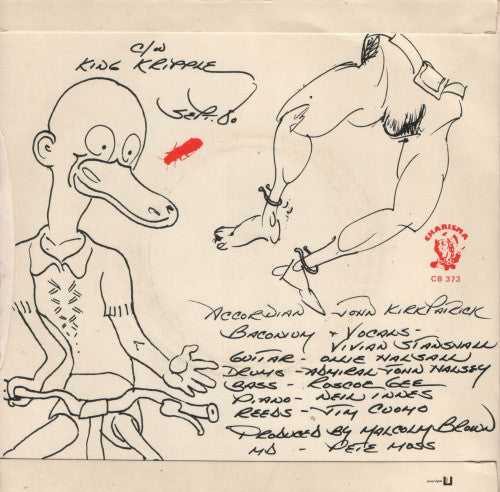 C/W
KING KRIPPLE
SEPT. 80
CHARISMA
CB 373
ACCORDIAN - JOHN KIRKPATRICK
BACONIUM + VOCALS -
VIVIAN STANSHALL
GUITAR - OLLIE HALSALL
DRUMS - ADMIRAL JOHN HALSEY
BASS - ROSCOE GEE
PIANO - NEIL INNES
REEDS - TIM CUOMO
PRODUCED BY MALCOLM BROWN
MD - PETE MOSS